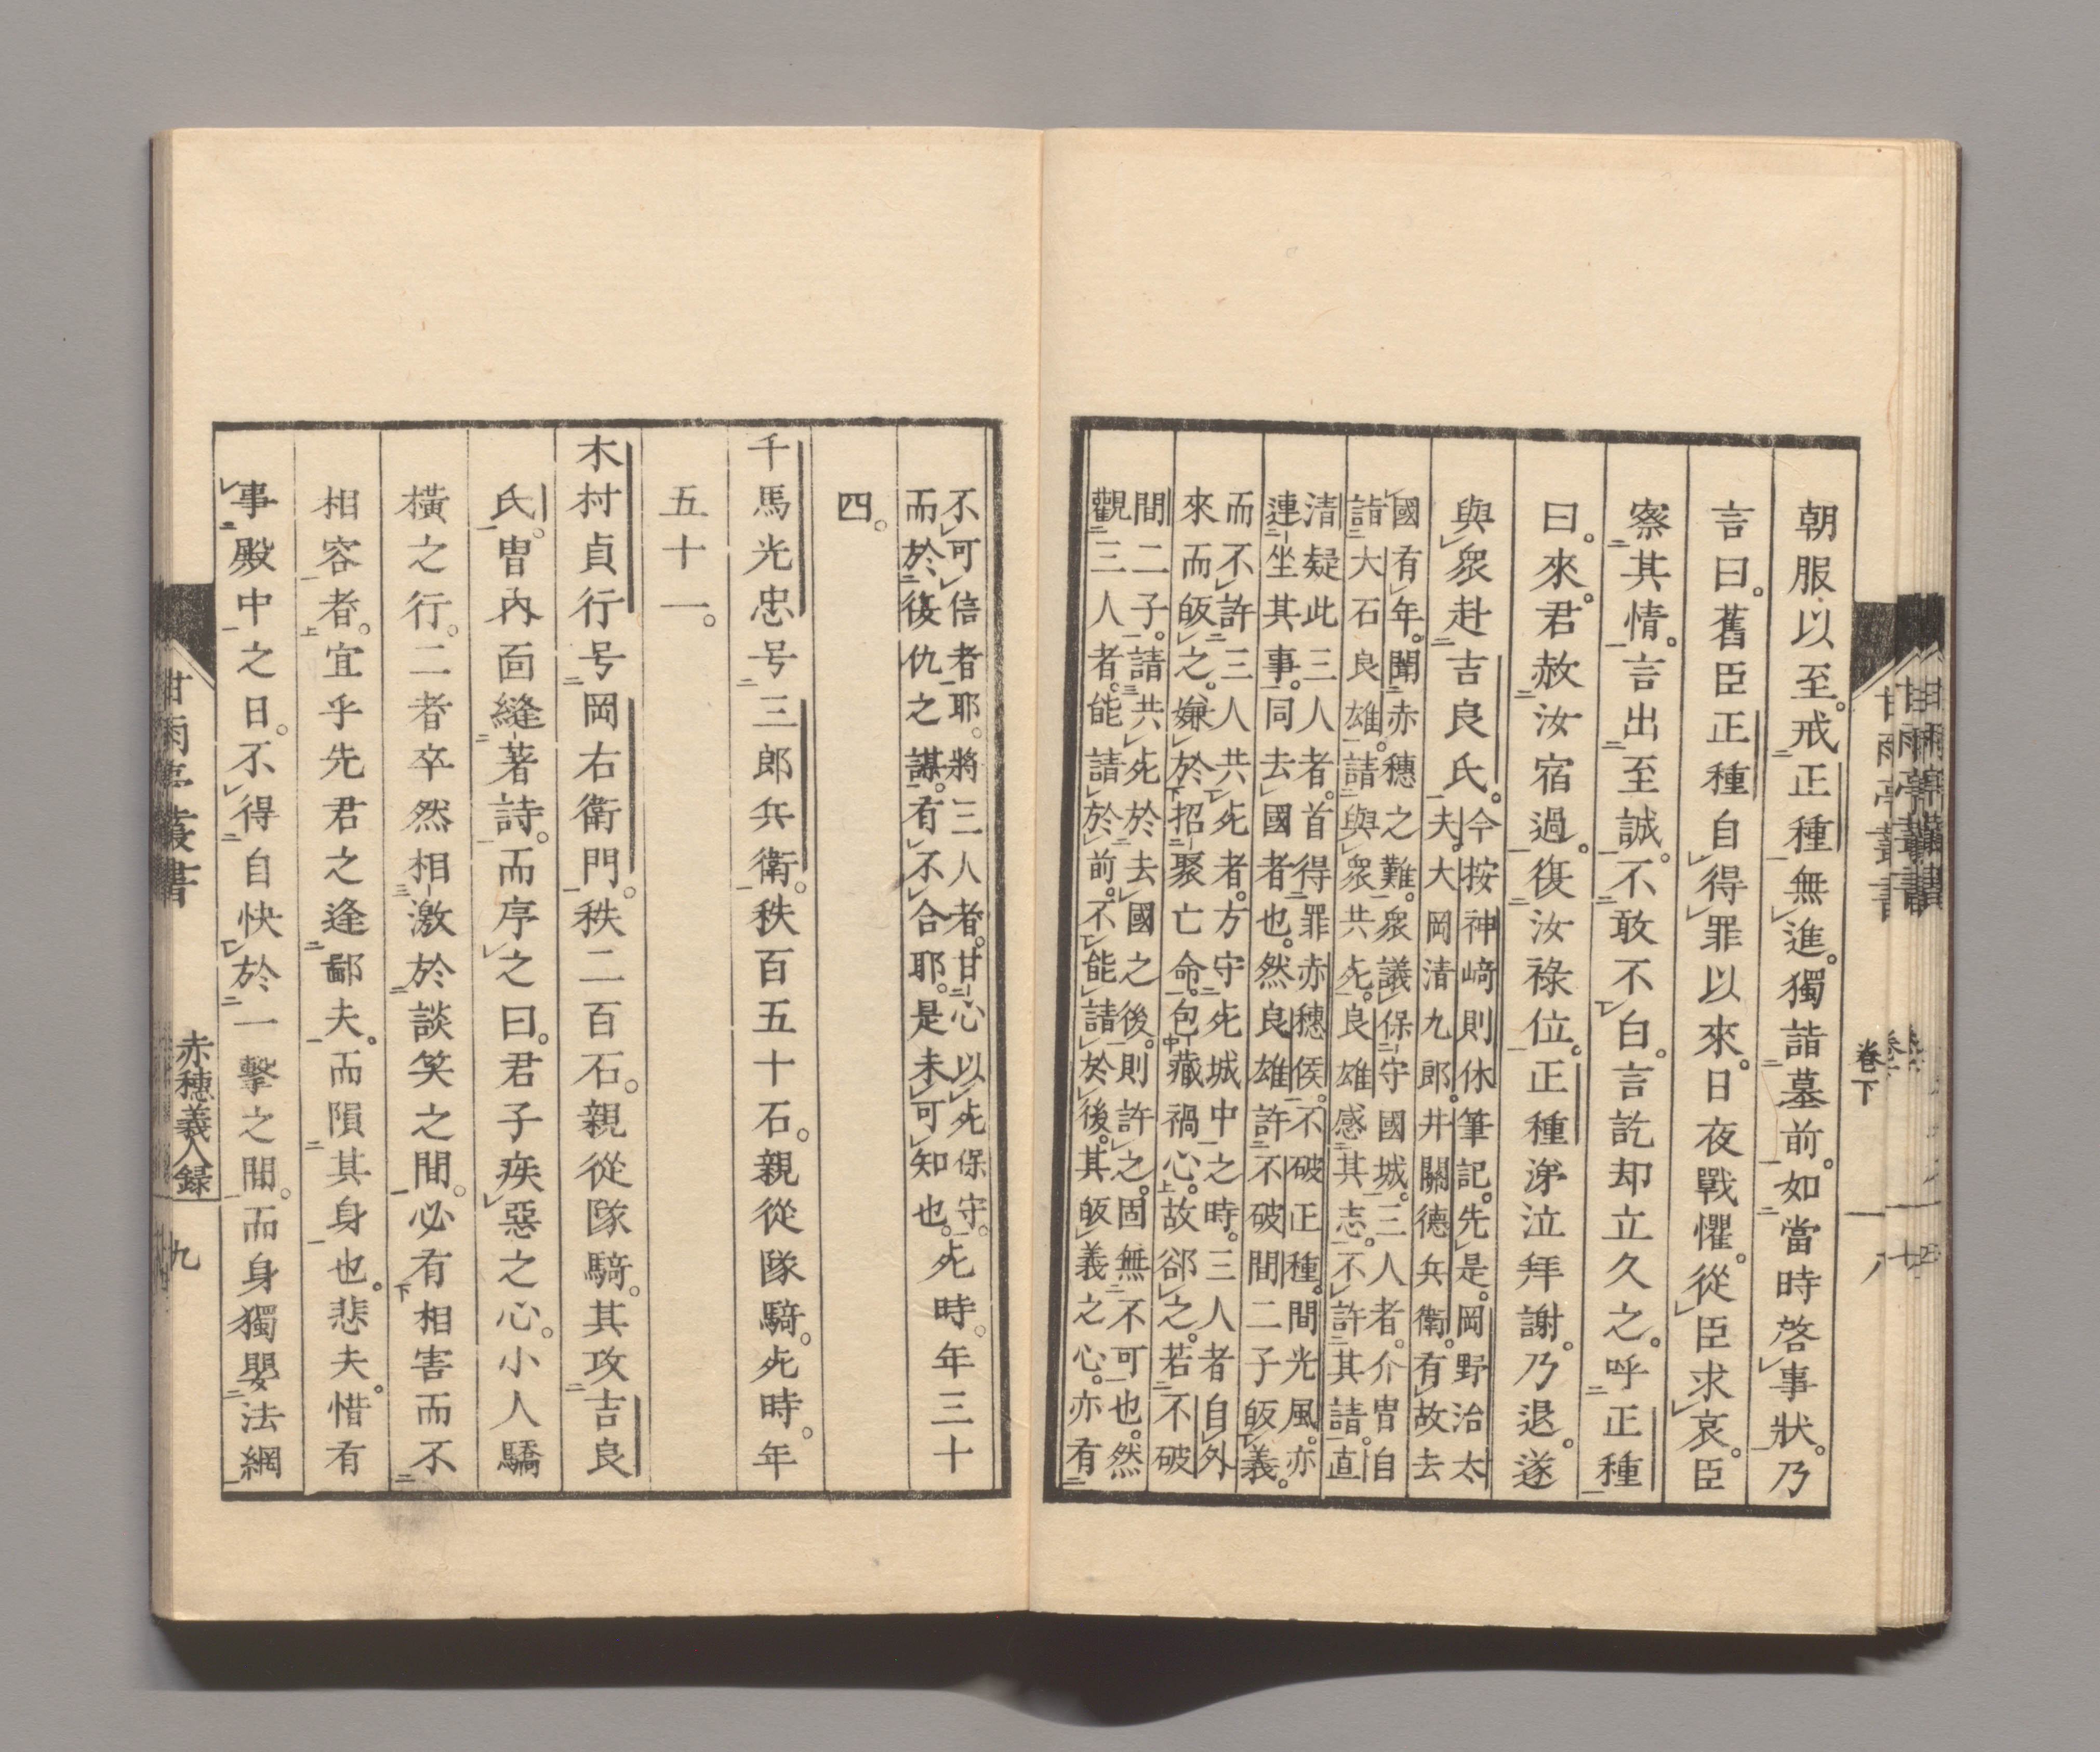 甘雨亭叢書
卷下
八
朝服以至。戒正種無進。獨詣墓前。如當時啓事狀。乃
言曰。舊臣正種自得罪以來。日夜戰懼。從臣求哀。臣
察其情。言出至誠。不敢不白。言訖却立久之。呼正種
曰。來。君赦汝宿過。復汝祿位。正種涕泣拜謝。乃退。遂
與衆赴吉良氏。
今按神﨑則休筆記。先是。岡野治太
夫。大岡清九郎。井關德兵衛。有故去
國有年。聞赤穗之難。衆議保守國城。三人者。介冑自
詣大石良雄。請與衆共死。良雄感其志。不許其請。直
清疑此三人者。首得罪赤穗侯。不破正種。間光風。亦
連坐其事。同去國者也。然良雄許不破間二子皈義。
而不許三人共死者。方守死城中之時。三人者自外
來而皈之。嫌於招聚亡命。包藏禍心。故郤之。若不破
間二子。請共死於去國之後。則許之。固無不可也。然
觀三人者。能請於前。不能請於後。其皈義之心。亦有
不可信者耶。將三人者。甘心以死保守。
而於復仇之謀。有不合耶。是未可知也。
死時。年三十
四。
千馬光忠号三郎兵衛。秩百五十石。親從隊騎。死時。年
五十一。
木村貞行号岡右衛門。秩二百石。親從隊騎。其攻吉良
氏。冑內面縫著詩。而序之曰。君子疾惡之心。小人驕
橫之行。二者卒然相激於談笑之間。必有相害而不
相容者。宜乎先君之逢鄙夫。而隕其身也。悲夫。惜有
事殿中之日。不得自快於一擊之間。而身獨嬰法網
甘雨亭叢書
赤穗義人錄
九